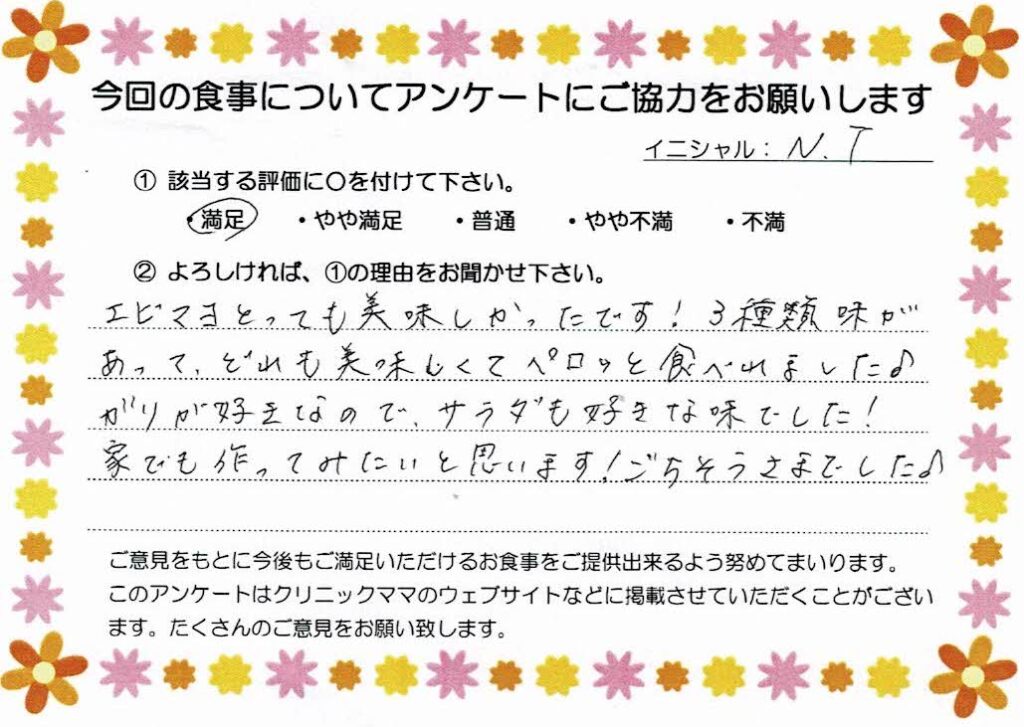 今回の食事についてアンケートにご協力をお願いします
イニシャル：N.T
① 該当する評価に〇を付けて下さい。
・満足 ・やや満足 ・普通 ・やや不満 ・不満
② よろしければ、①の理由をお聞かせ下さい。
エビマヨとっても美味しかったです！3種類味が
あって、どれも美味しくてペロッと食べれました♪
がりが好きなので、サラダも好きな味でした！
家でも作ってみたいと思います！ごちそうさまでした♪
ご意見をもとに今後もご満足いただけるお食事をご提供出来るよう努めてまいります。
このアンケートはクリニックママのウェブサイトなどに掲載させていただくことがござい
ます。たくさんのご意見をお願い致します。